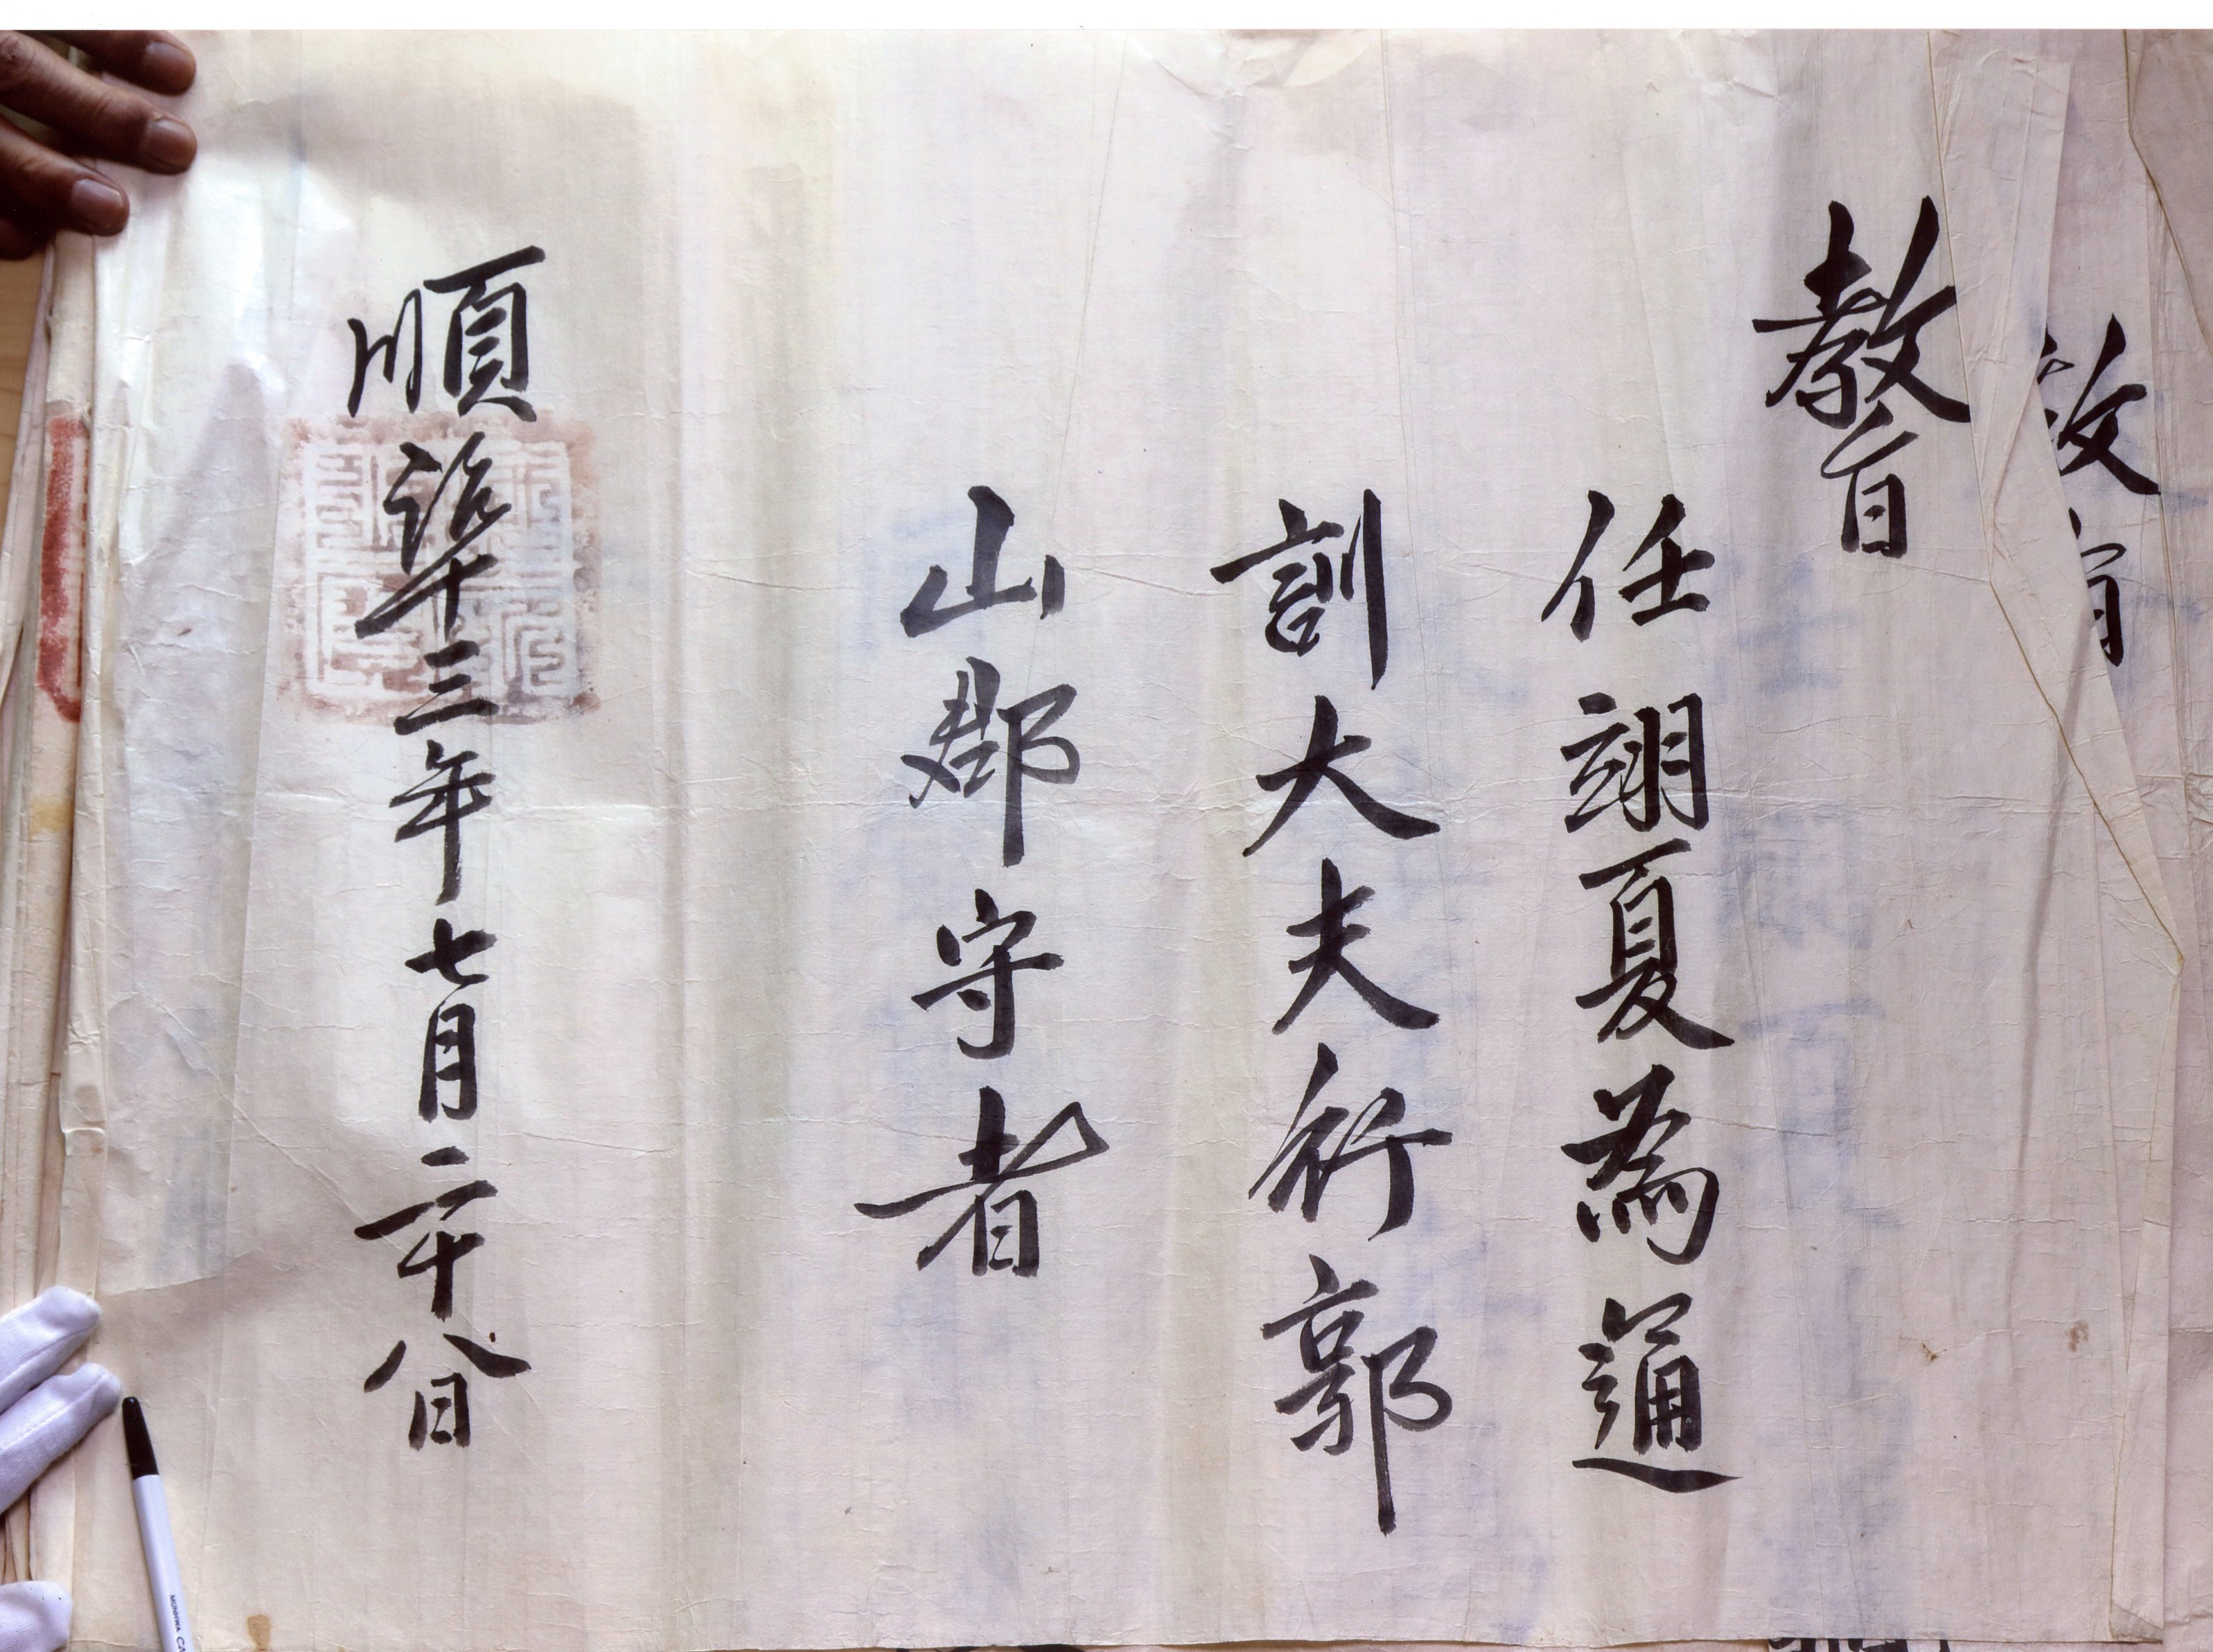 教旨
任翊夏為通
訓大夫行郭
山郡守者
順治十三年七月二十八日
MUNHWA